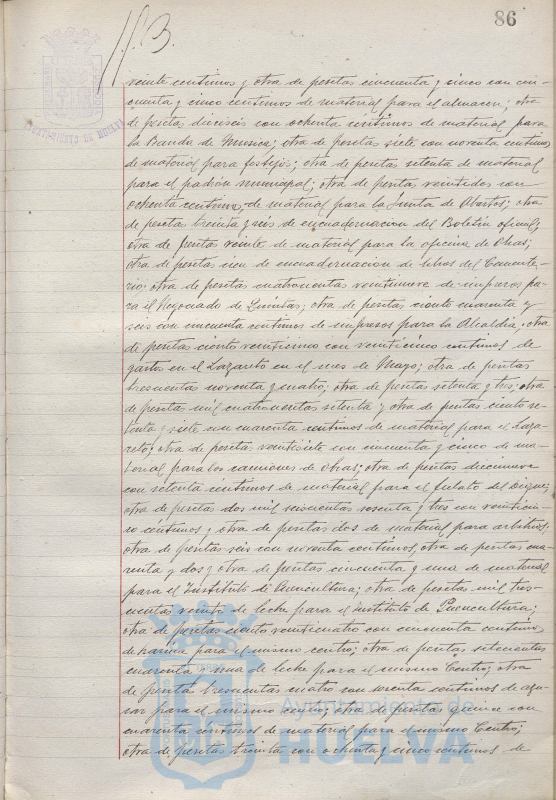 86
veinte centimos y otra de pesetas cincuenta y cinco con cin-
cuenta y cinco centimos de material para el almacen; otra
de pesetas dieciseis con ochenta centimos de material para
AYUNTAMIENTO DE HUELVA
la Banda de Musica; otra de pesetas siete con noventa centimos
de material para festejos; otra de pesetas setenta de material
para el padrón municipal; otra de pesetas veintidos con
ochenta centimos de material para la Junta de Abastos; otra
de pesetas treinta y seis de encuadernacion del Boletin oficial;
otra de pesetas veinte de material para la oficina de Obras;
otra de pesetas cien de encuadernacion de libros del Cemente-
rio; otra de pesetas cuatrocientas veintinueve de impresos pa-
ra el Negociado de Quintas; otra de pesetas ciento cuarenta y
seis con cincuenta centimos de impresos para la Alcaldia; otra
de pesetas ciento veinticinco con veinticinco centimos de
gastos en el Lazareto en el mes de Mayo; otra de pesetas
trescientas noventa y cuatro; otra de pesetas setenta y tres; otra
de pesetas mil cuatrocientas setenta y otra de pesetas ciento se-
tenta y siete con cuarenta centimos de material para el Laza-
reto; otra de pesetas veintisiete con cincuenta y cinco de ma-
terial para los camiones de Obras; otra de pesetas diecinueve
con setenta centimos de material para el fielato del Dique;
otra de pesetas dos mil seiscientas sesenta y tres con veinticin-
co céntimos y otra de pesetas dos de material para arbitrios;
otra de pesetas seis con noventa centimos, otra de pesetas cua-
renta y dos y otra de pesetas cincuenta y una de material
para el Instituto de Puericultura; otra de pesetas mil tres-
cientas veinte de leche para el Instituto de Puericultura;
otra de pesetas ciento veinticuatro con cincuenta centimos
de harina para el mismo centro; otra de pesetas setecientas
cuarenta y una de leche para el mismo Centro; otra
de pesetas trescientas cuatro con sesenta centimos de azu-
car para el mismo centro; otra de pesetas quince con
cuarenta centimos de material para el mismo Centro;
otra de pesetas treinta con ochenta y cinco centimos de
Ayuntamiento de
HUELVA